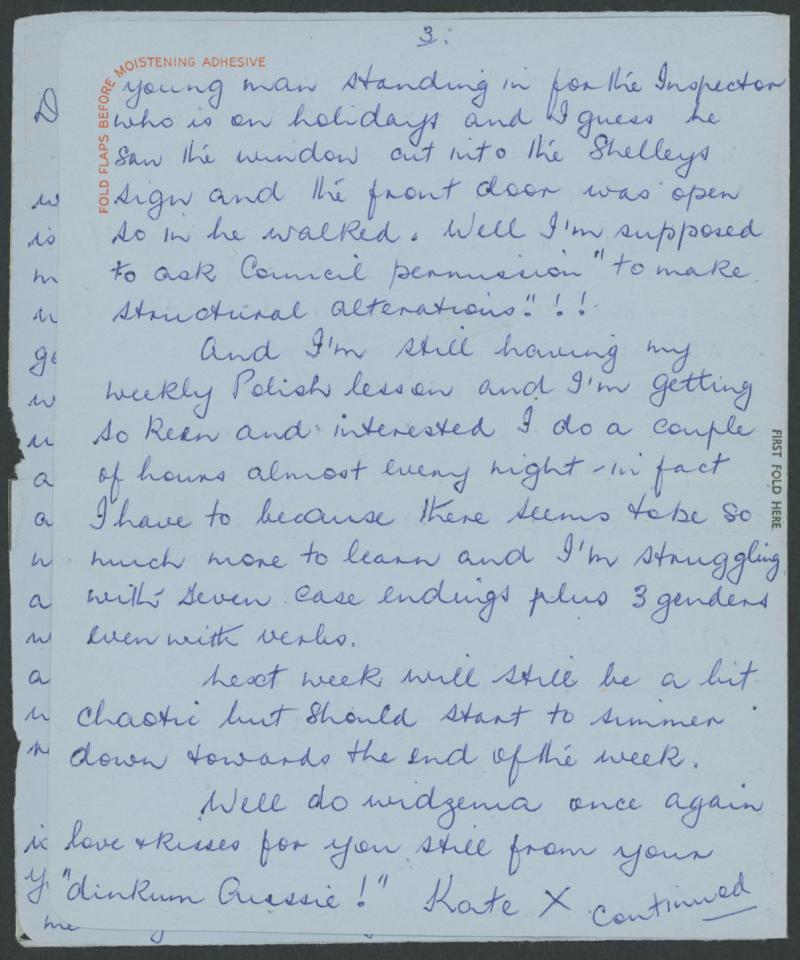 3.
FOLD FLAPS BEFORE MOISTENING ADHESIVE
young man standing in for the Inspector
who is on holidays and I guess he
saw the window cut into the Shelleys
sign and the front door was open
so in he walked. Well I'm supposed
to ask Council permission "to make
structural alterations"!!!
And I'm still having my
weekly Polish lesson and I'm getting
so keen and interested I do a couple
of hours almost every night - in fact
FIRST FOLD HERE
I have to because there seems to be so
much more to learn and I'm struggling
with seven case endings plus 3 genders
even with verbs.
Next week will still be a bit
chaotic but should start to simmer
down towards the end of the week.
Well do widzenia once again
love & kisses for you still from your
"dinkum Aussie!" Kate X continued